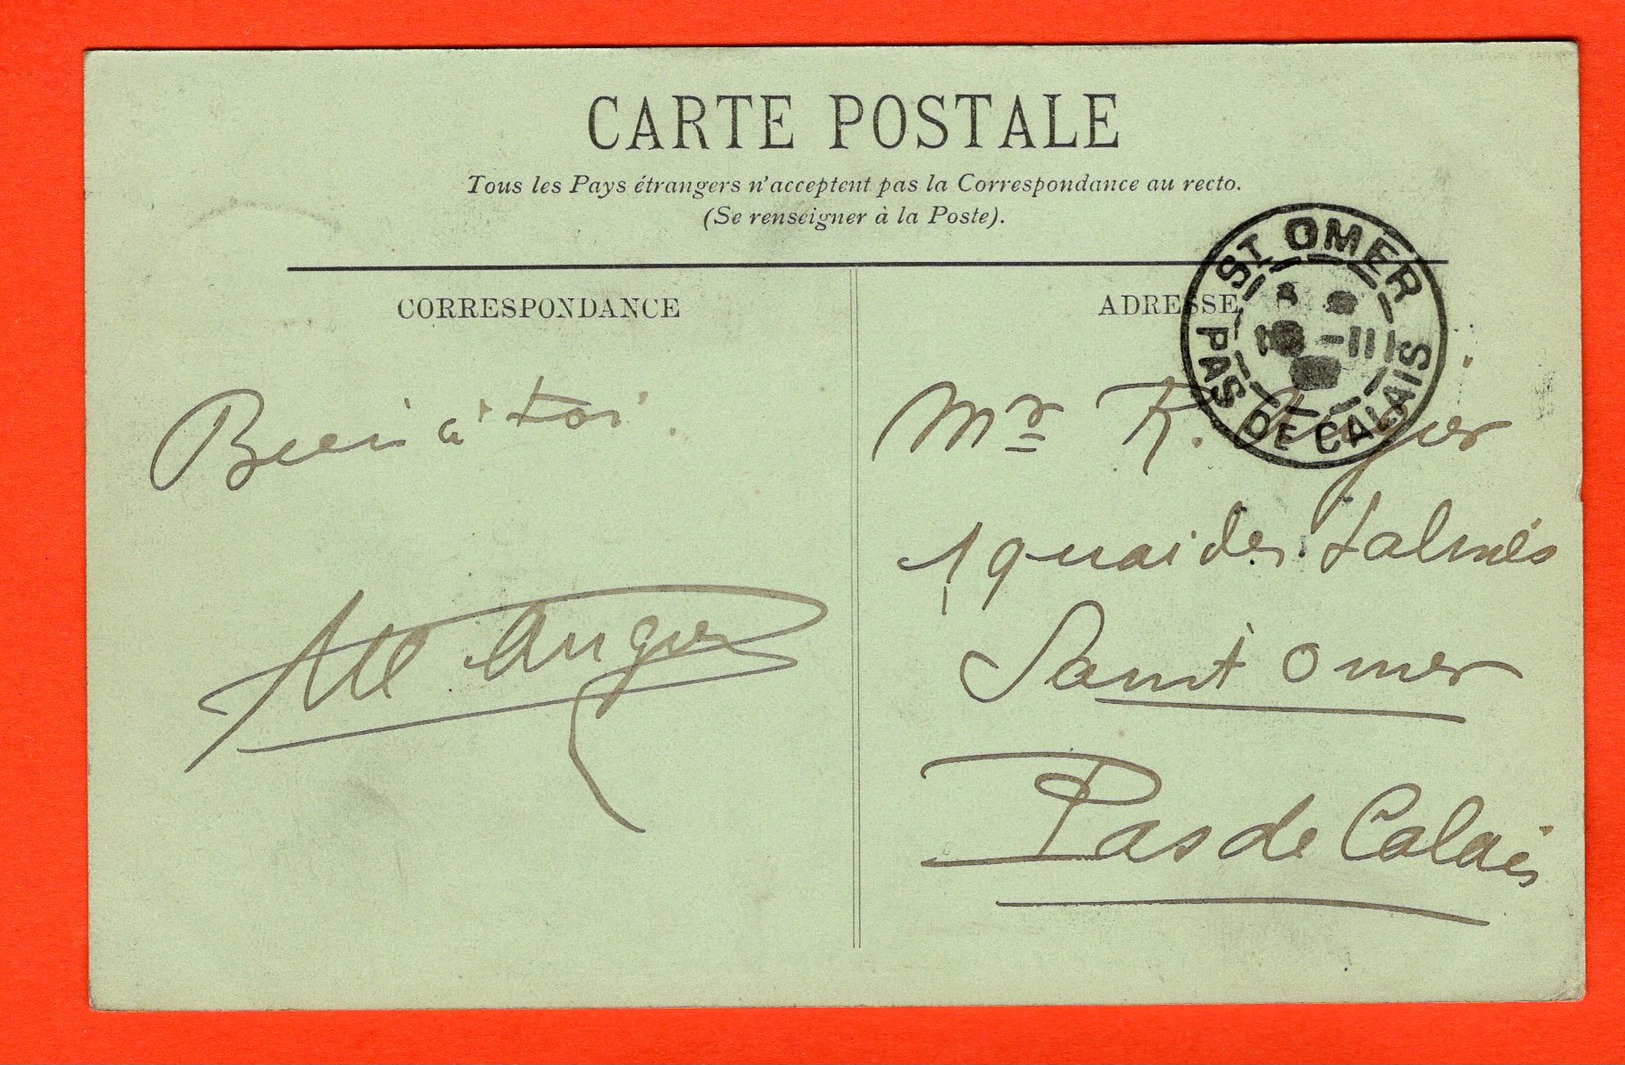 CARTE POSTALE
Tous les Pays étrangers n'acceptent pas la Correspondance au recto.
(Se renseigner à la Poste).
CORRESPONDANCE
Bien à toi.
ADRESSE
ST OMER
PAS DE CALAIS
Mr K.
1 quai des
Saint Omer
Pas de Calais